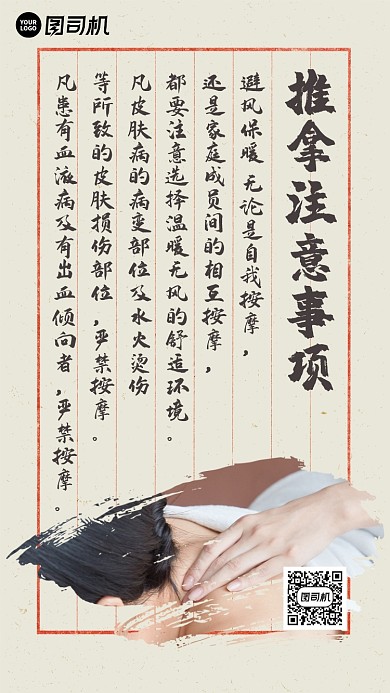 YOUR LOGO
图司机
推拿注意事项
避风保暖 无论是自我按摩，
还是家庭成员间的相互按摩，
都要注意选择温暖无风的舒适环境。
凡皮肤病的病变部位及水火烫伤
等所致的皮肤损伤部位，严禁按摩。
凡患有血液病及有出血倾向者，严禁按摩。
图司机